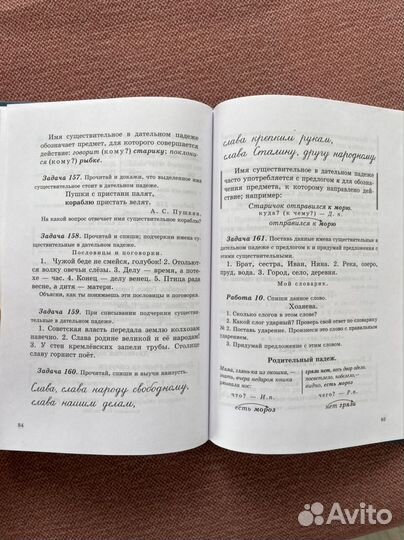 Имя существительное в дательном падеже
обозначает предмет, для которого совершается
действие: говорит (кому?) старику; поклони-
ся (кому?) рыбке.
Задача 157. Прочитай и докажи, что выделенное имя
существительное стоит в дательном падеже.
Пушки с пристани палят,
кораблю пристать велят.
А. С. Пушкин.
На какой вопрос отвечает имя существительное кораблю?
Задача 158. Спиши; подчеркни имена су-
ществительные в дательном падеже.
Пословицы и поговорки.
1. Чужой беде не смейся, голубок! 2. Отольют-
ся волку овечьи слёзы. 3. Делу — время, а поте-
хе — час. 4. Конец — делу венец. 5. Птица рада
весне, а дитя — матери.
Объясни, как ты понимаешь эти пословицы и поговорки.
Задача 159. При списывании подчеркни существитель-
ные в дательном падеже.
1. Советская власть передала землю колхозам
навечно. 2. Слава родине великой и её народам!
3. У стен кремлёвских запели трубы. Столице
славу горнист поёт.
Задача 160. Прочитай, спиши и выучи наизусть.
Слава, слава народу свободному,
слава нашим делам,
84
слава крепким рукам,
слава Сталину, другу народному
Имя существительное в дательном падеже
часто употребляется с предлогом к для обозначе-
ния предмета, к которому направлено дей-
ствие; например:
Старичок отправился к морю.
куда? (к чему?) — Д. п.
отправился к морю
Задача 161. Поставь данные имена существительные в
дательном падеже с предлогом к и придумай с ними
предложения.
1. Брат, сестра, Иван, Няна. 2. Река, озеро,
пруд, вода. 3. Город, село, деревня.
Мой словарик.
Работа 10. Спиши данное слово.
Хозяева.
1. Сколько слогов в этом слове?
2. Какой слог ударный? Проверь свой ответ по словарику
№ 2. Поставь ударение. Произнеси это слово с правильным
ударением.
3. Придумай предложение с этим словом.
Родительный падеж.
Мама, глянь-ка из окошка,
знать, вчера недаром кошка
умывала нос:
грязи нет, весь двор одело,
посветлело, побелело —
видно, есть мороз
что? — И.п.
чего? — Р.п.
есть мороз
нет грязи
85
Avito